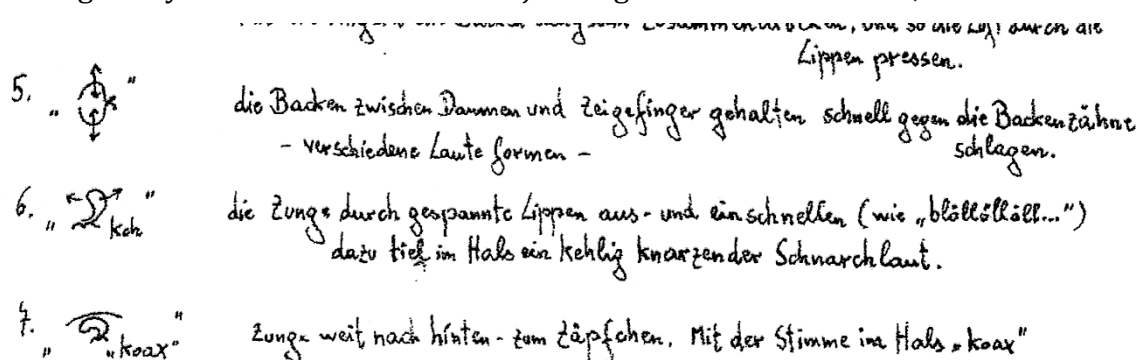 Lippen pressen.
5. „ " die Backen zwischen Daumen und Zeigefinger gehalten schnell gegen die Backenzähne
- verschiedene Laute formen - schlagen.
6. „ kch " die Zunge durch gespannte Lippen aus- und einschnellen (wie „blöllöllöll...")
dazu tief im Hals ein kehlig knarzender Schnarchlaut.
7. „ „koax" " Zunge weit nach hinten - zum Zäpfchen. Mit der Stimme im Hals „koax"